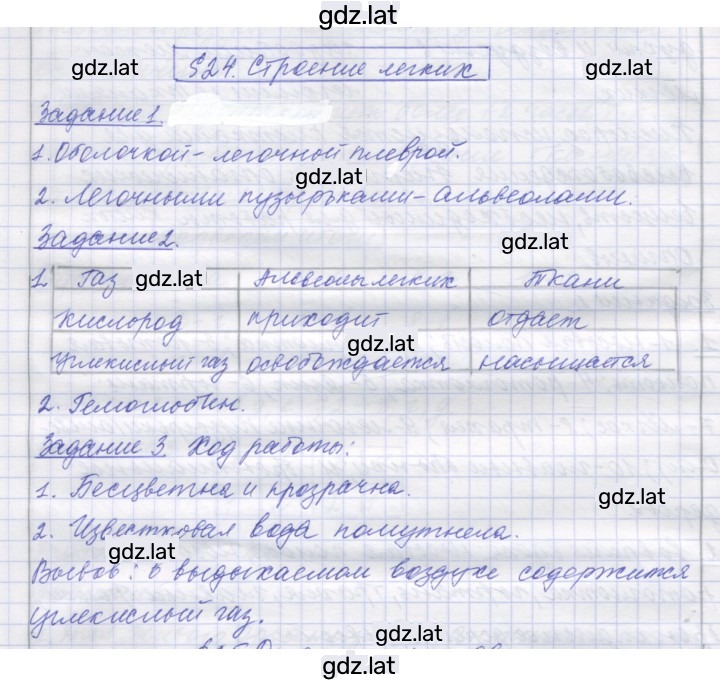 gdz.lat
gdz.lat gdz.lat
§24. Строение легких
Задание 1.
1. Оболочкой - легочной плеврой.
gdz.lat
2. Легочными пузырьками - альвеолами.
Задание 2. gdz.lat
1. Газ gdz.lat Альвеолы легких Ткани
Кислород приходит отдает
gdz.lat
Углекислый газ освобождается насыщается
2. Гемоглобин.
Задание 3. Ход работы:
1. Бесцветна и прозрачна. gdz.lat
2. Известковая вода помутнела.
gdz.lat
Вывов: в выдыхаемом воздухе содержится
углекислый газ.
gdz.lat
gdz.lat